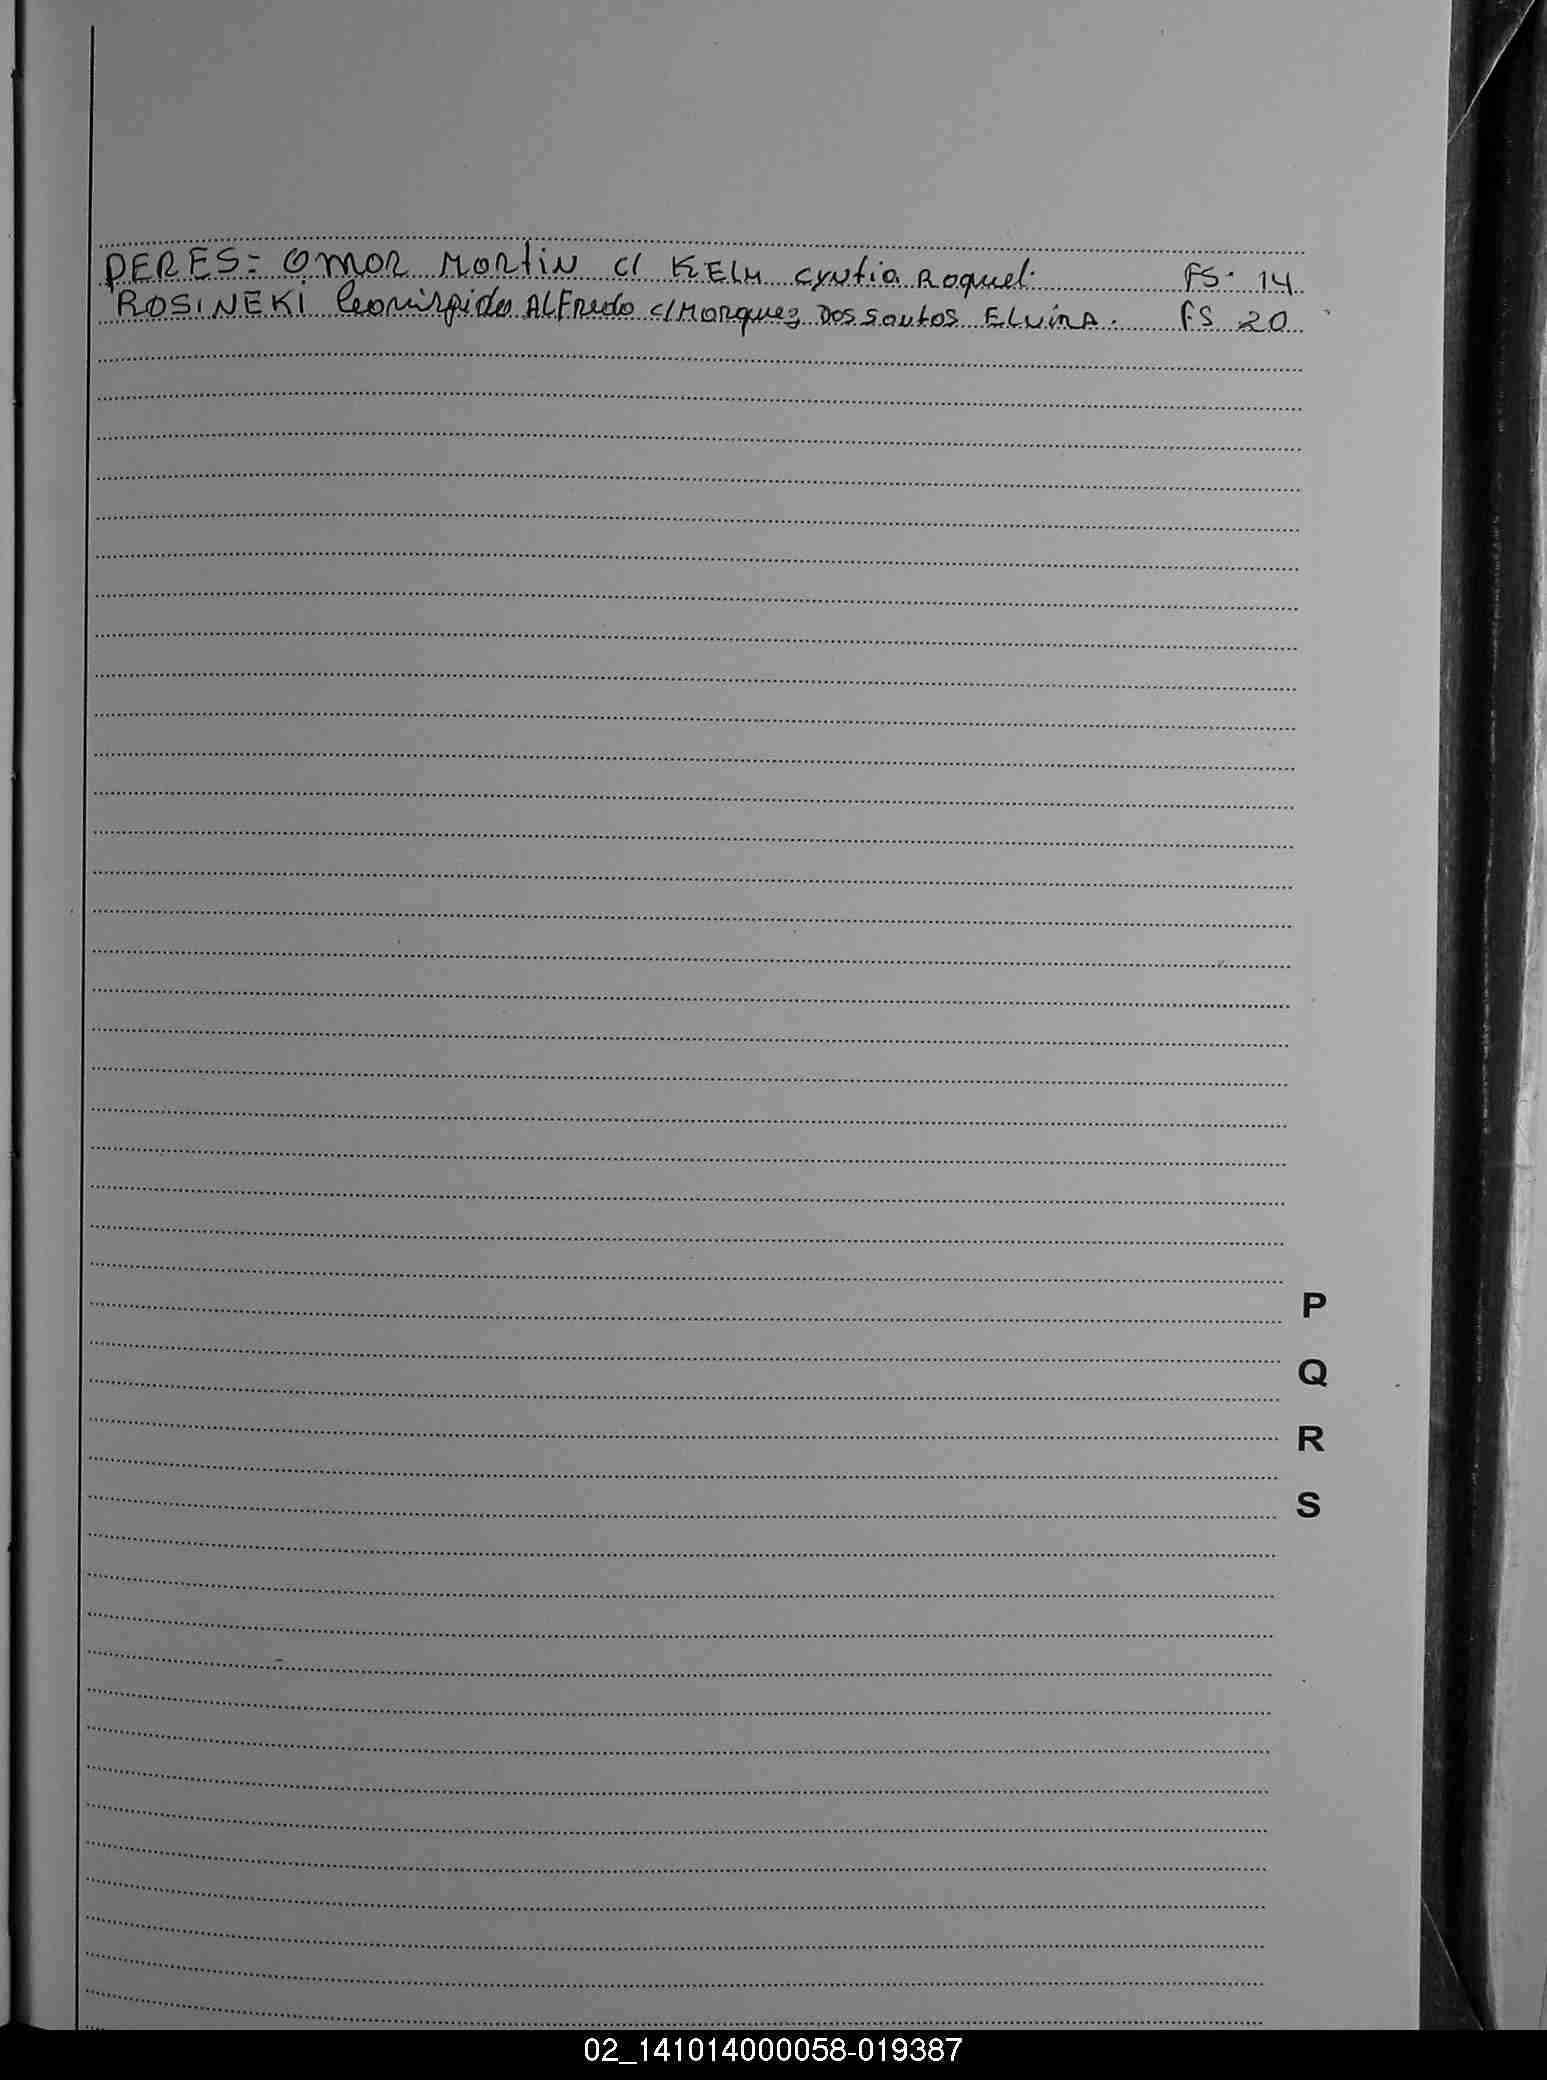 PERES= Omar Martin c/ KELM Cyntia Raquel. FS. 14
ROSINEKI ALFredo c/ Marquez Dos Santos ELvirA. FS 20
P
Q
R
S
02_141014000058-019387